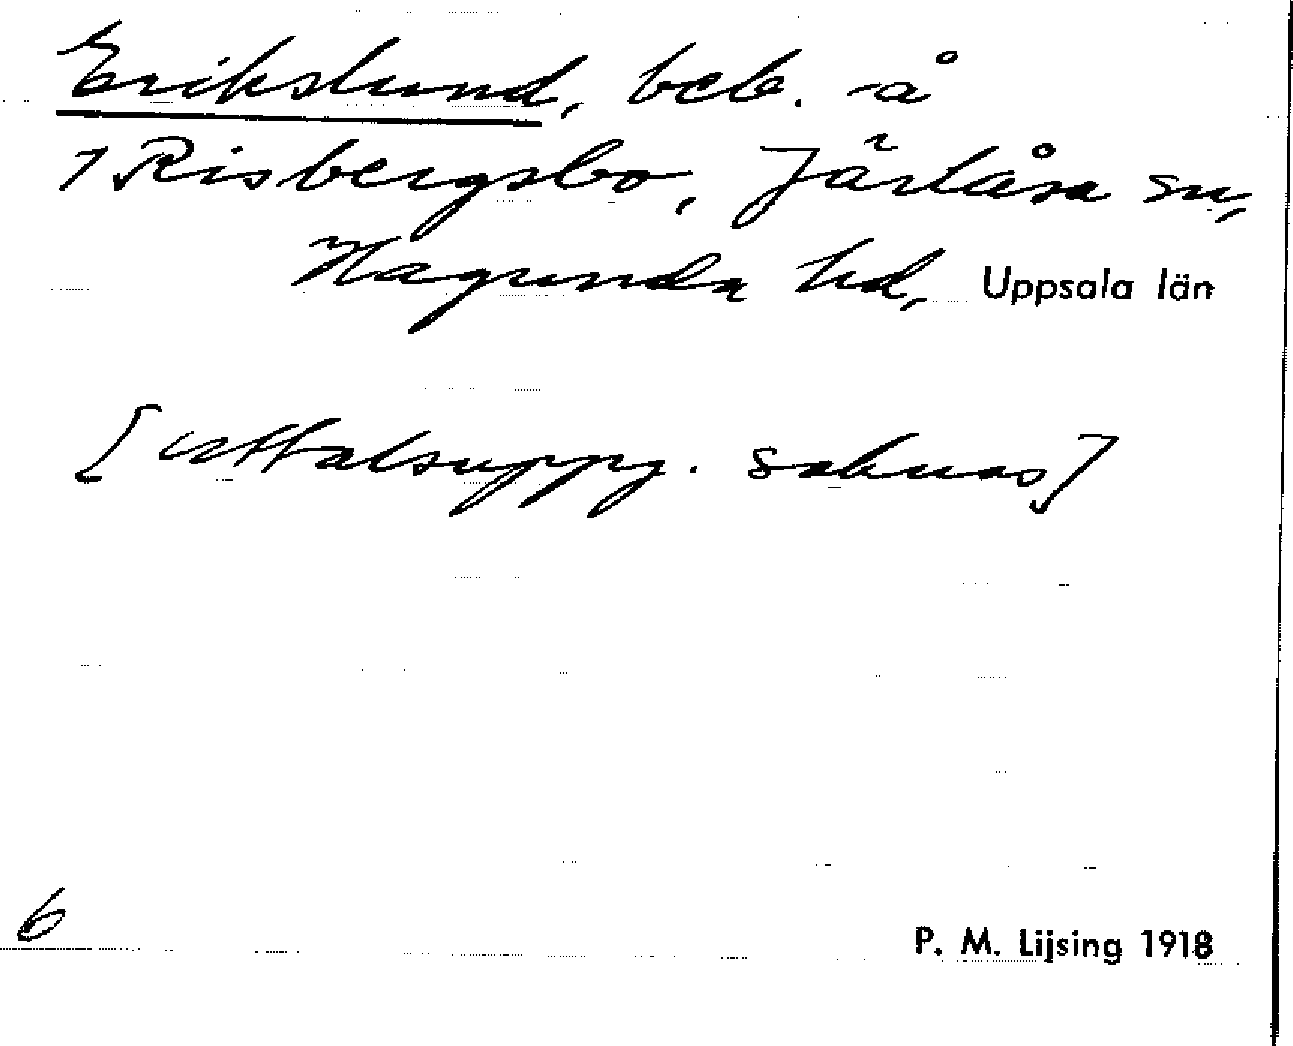 Erikslund, beb. å
1 Risbergsbo, Järlåsa sn,
Hagunda hd, Uppsala län
[uttalsuppg. saknas]
6
P. M. Lijsing 1918